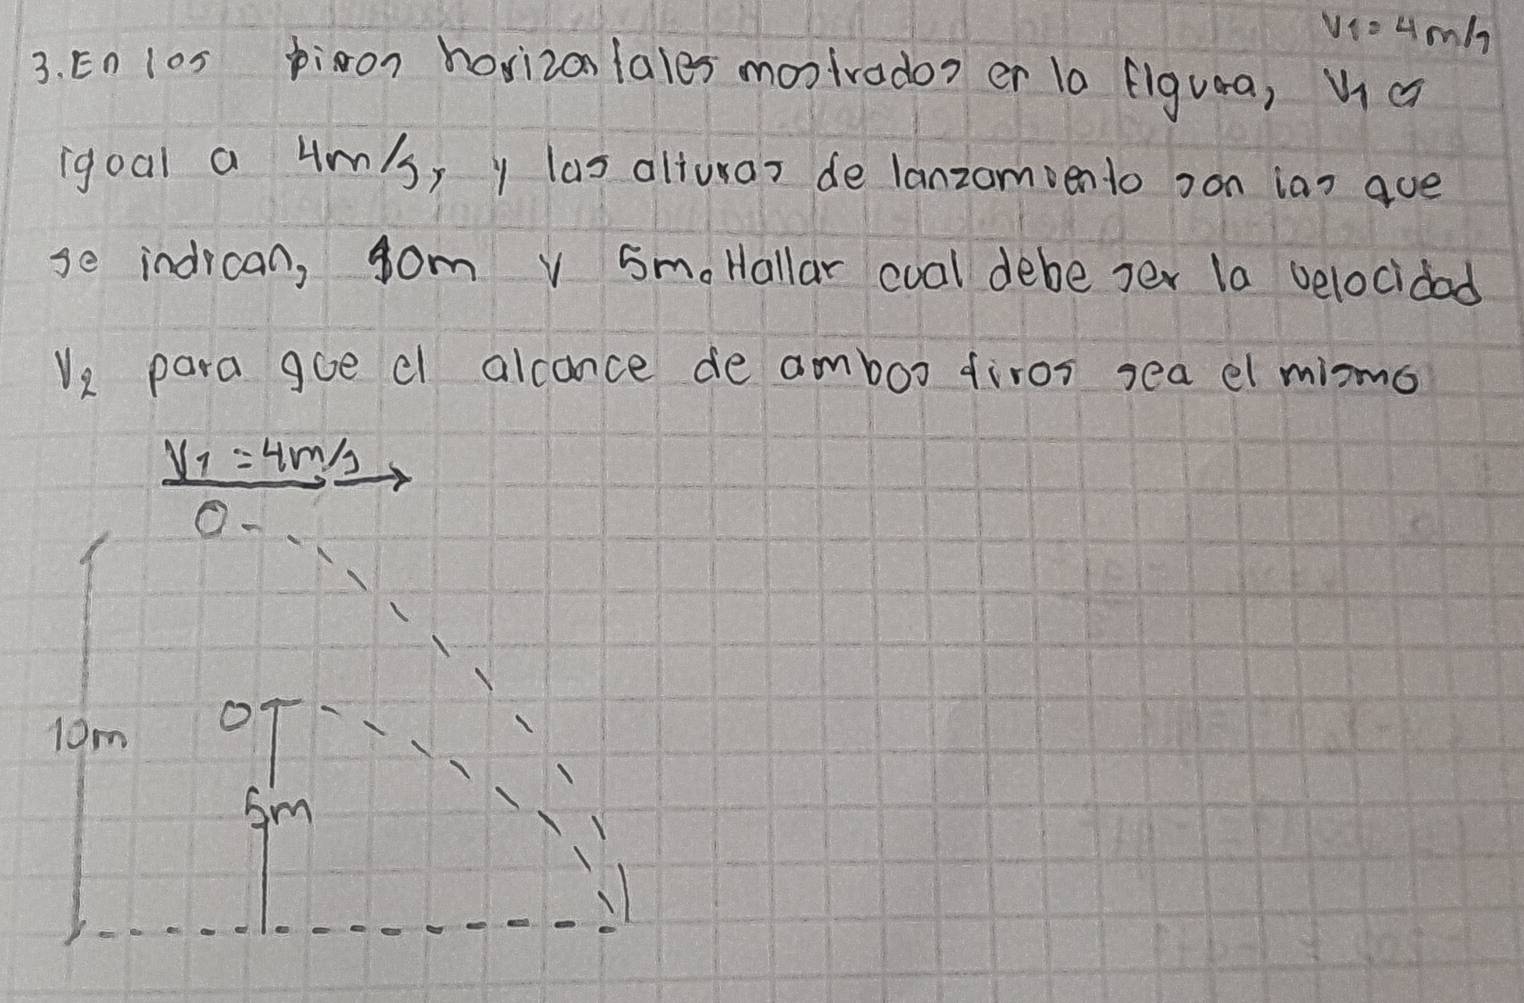 V1=4m/s
3. En los tiros horizontales mostrados en la figura, V1 es
igual a 4m/s, y las alturas de lanzamiento son las que
se indican, 10m y 5m. Hallar cual debe ser la velocidad
V2 para que el alcance de ambos tiros sea el mismo
V1=4m/s
10m
5m